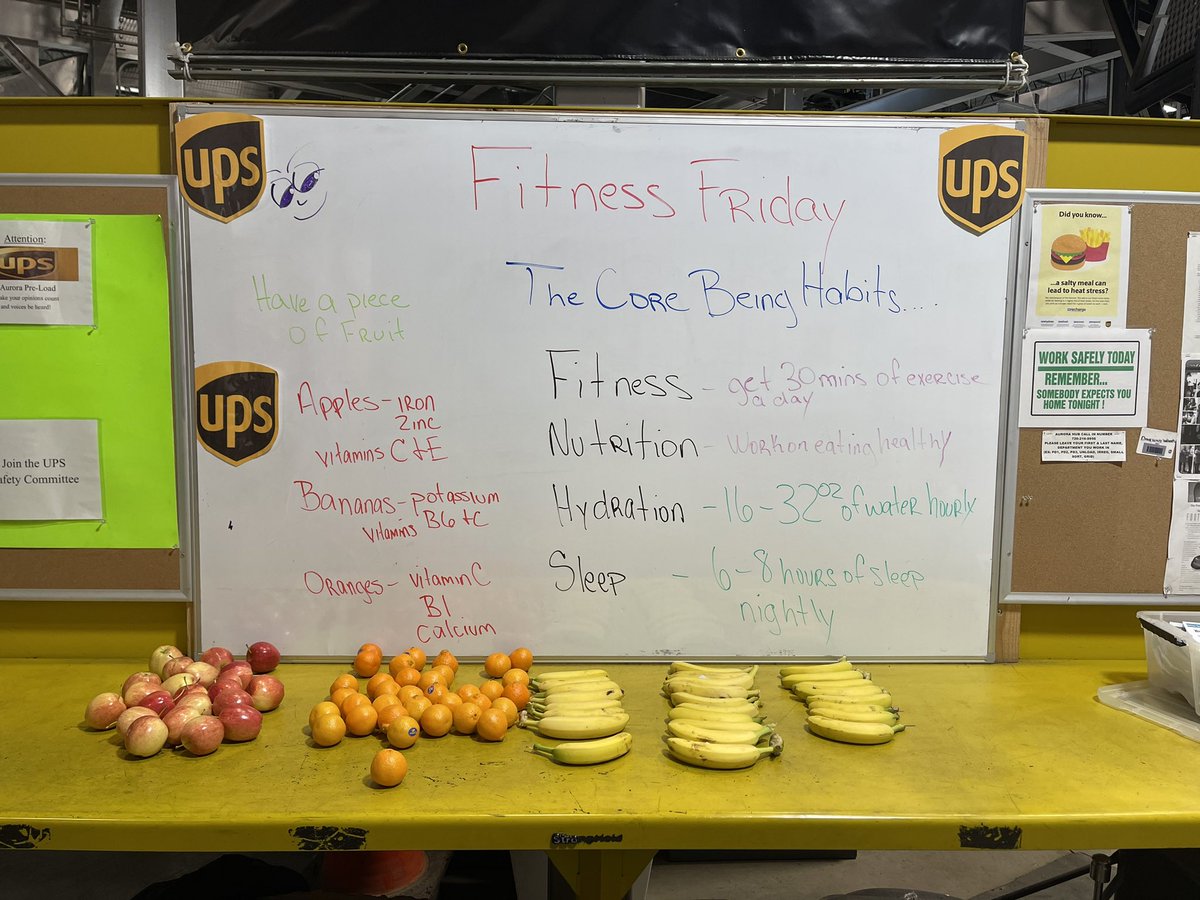 ups
Fitness Friday
ups
Have a piece
of Fruit
The Core Being Habits...
ups
Apples - iron
Zinc
vitamins C & E
Bananas - potassium
vitamins B6 + C
Oranges - vitamin C
B1
calcium
Fitness - get 30 mins of exercise
a day
Nutrition - Work on eating healthy
Hydration - 16 - 32 oz of water hourly
Sleep - 6 - 8 hours of sleep
nightly
Attention:
ups
Aurora Pre-Load
ake your opinions count
and voices be heard!
Join the UPS
afety Committee
Did you know...
...a salty meal can
lead to heat stress?
WORK SAFELY TODAY
REMEMBER...
SOMEBODY EXPECTS YOU
HOME TONIGHT !
AURORA HUB CALL IN NUMBER
PLEASE LEAVE YOUR FIRST & LAST NAME,
DEPARTMENT YOU WORK IN